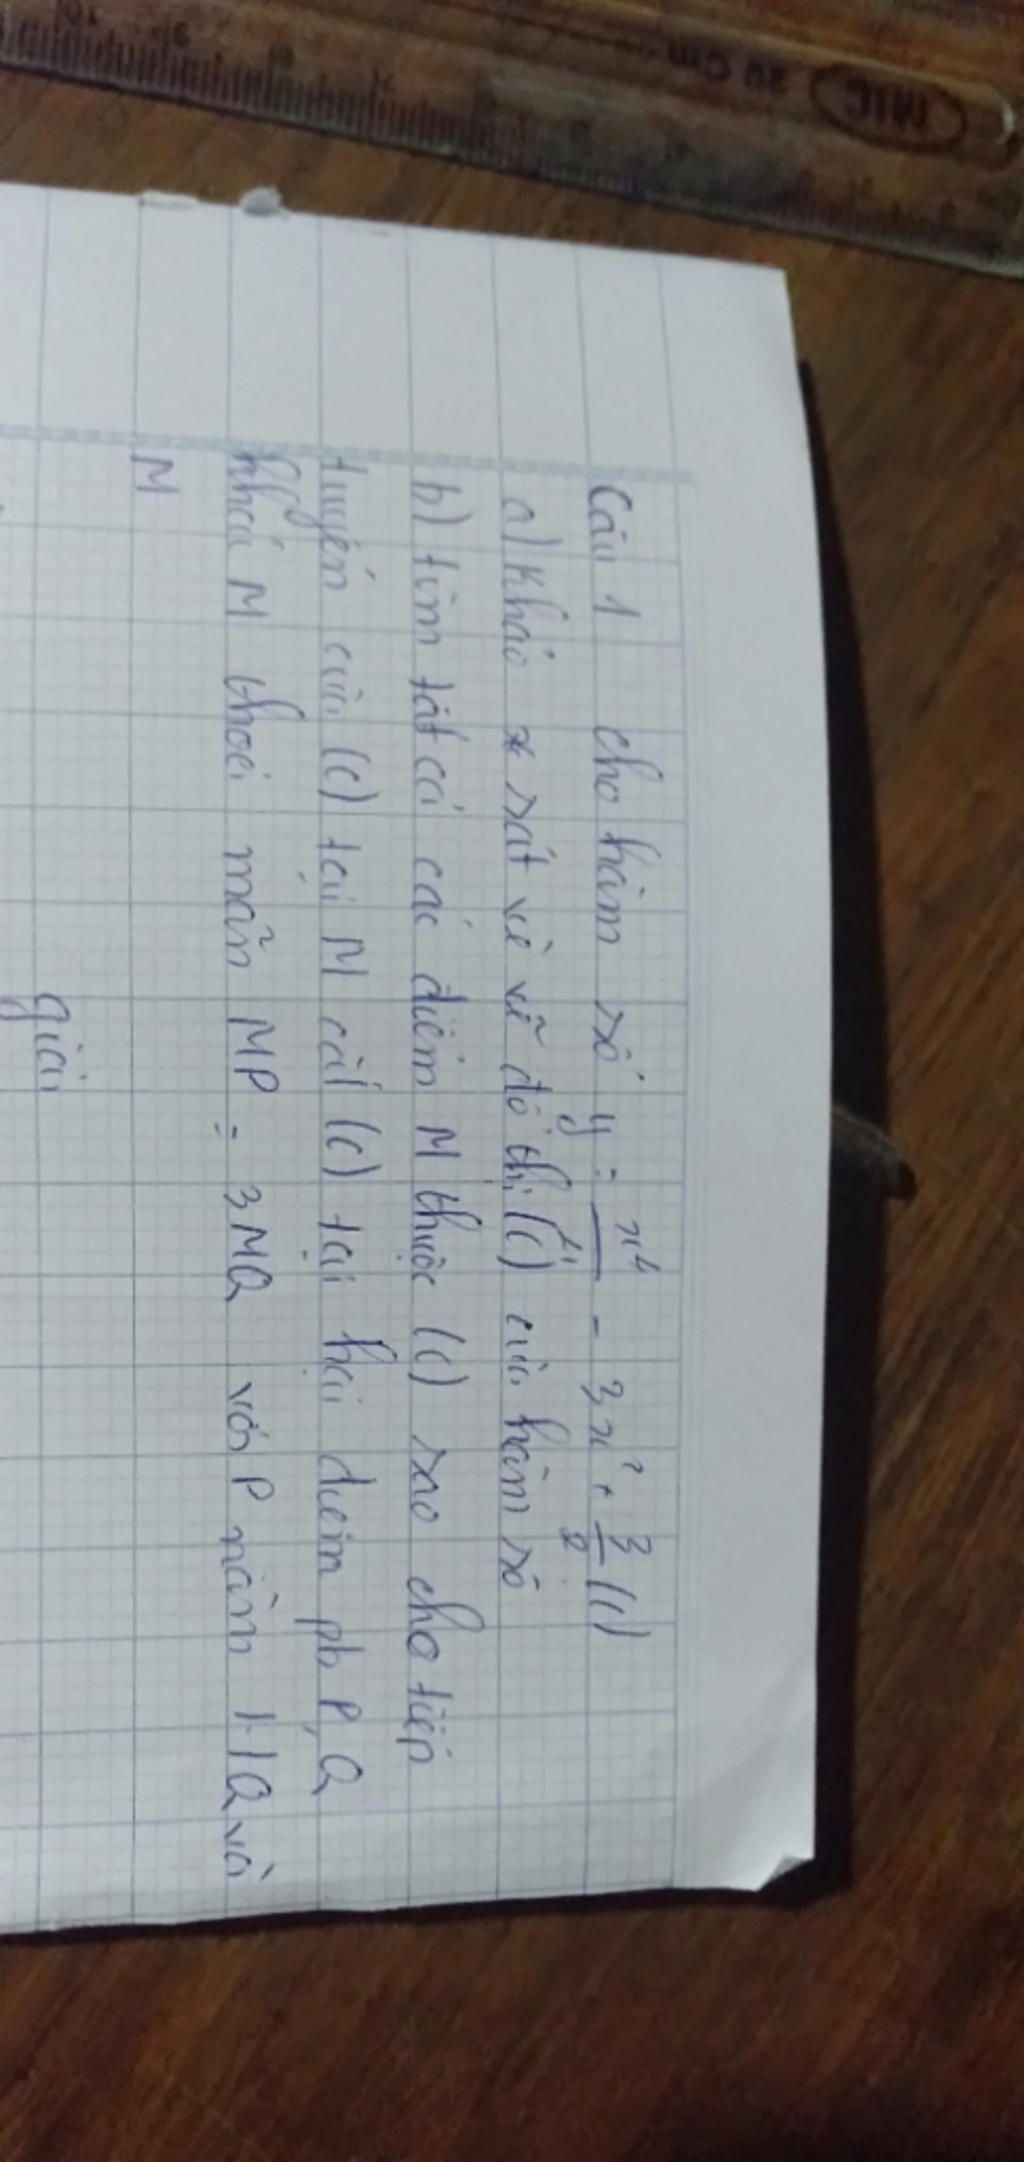 Câu 1 cho hàm số y = x⁴/4 - 3x² + 3/2 (1)
a) khảo sát và vẽ đồ thị (C) của hàm số
b) tìm tất cả các điểm M thuộc (C) sao cho tiếp
tuyến của (C) tại M cắt (C) tại hai điểm pb P, Q
khác M thoả mãn MP = 3MQ với P nằm + Q và
M
giải
MIC 20 cm